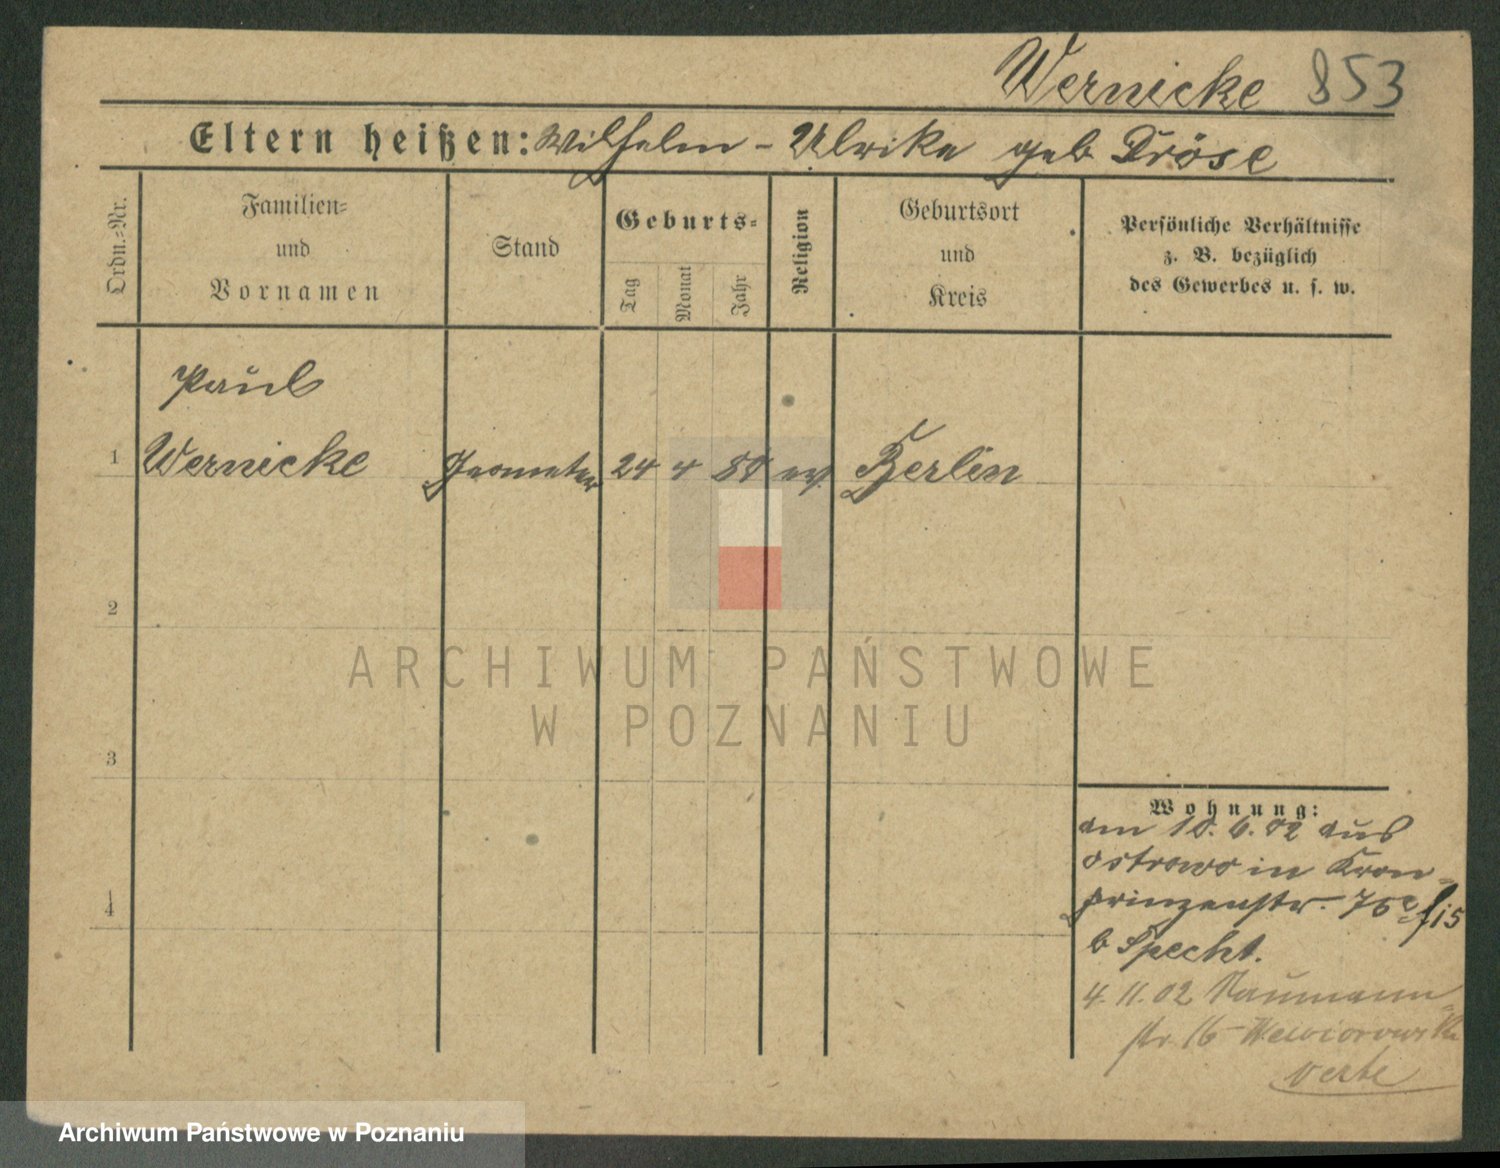 Wernicke 853
Eltern heißen: Wilhelm - Ulrike geb Dröse
Ordn.-Nr.
Familien-
und
Vornamen
Stand
Geburts-
Tag
Monat
Jahr
Religion
Geburtsort
und
Kreis
Persönliche Verhältnisse
z. B. bezüglich
des Gewerbes u. s. w.
Paul
1 Wernicke Geometer 24 4 80 ev. Berlin
2
3
4
ARCHIWUM PAŃSTWOWE
W POZNANIU
Wohnung:
am 10. 6. 02 aus
Ostrowo in Kron-
prinzenstr.
b Specht.
4. 11. 02 Naumann-
str 16
verte
Archiwum Państwowe w Poznaniu